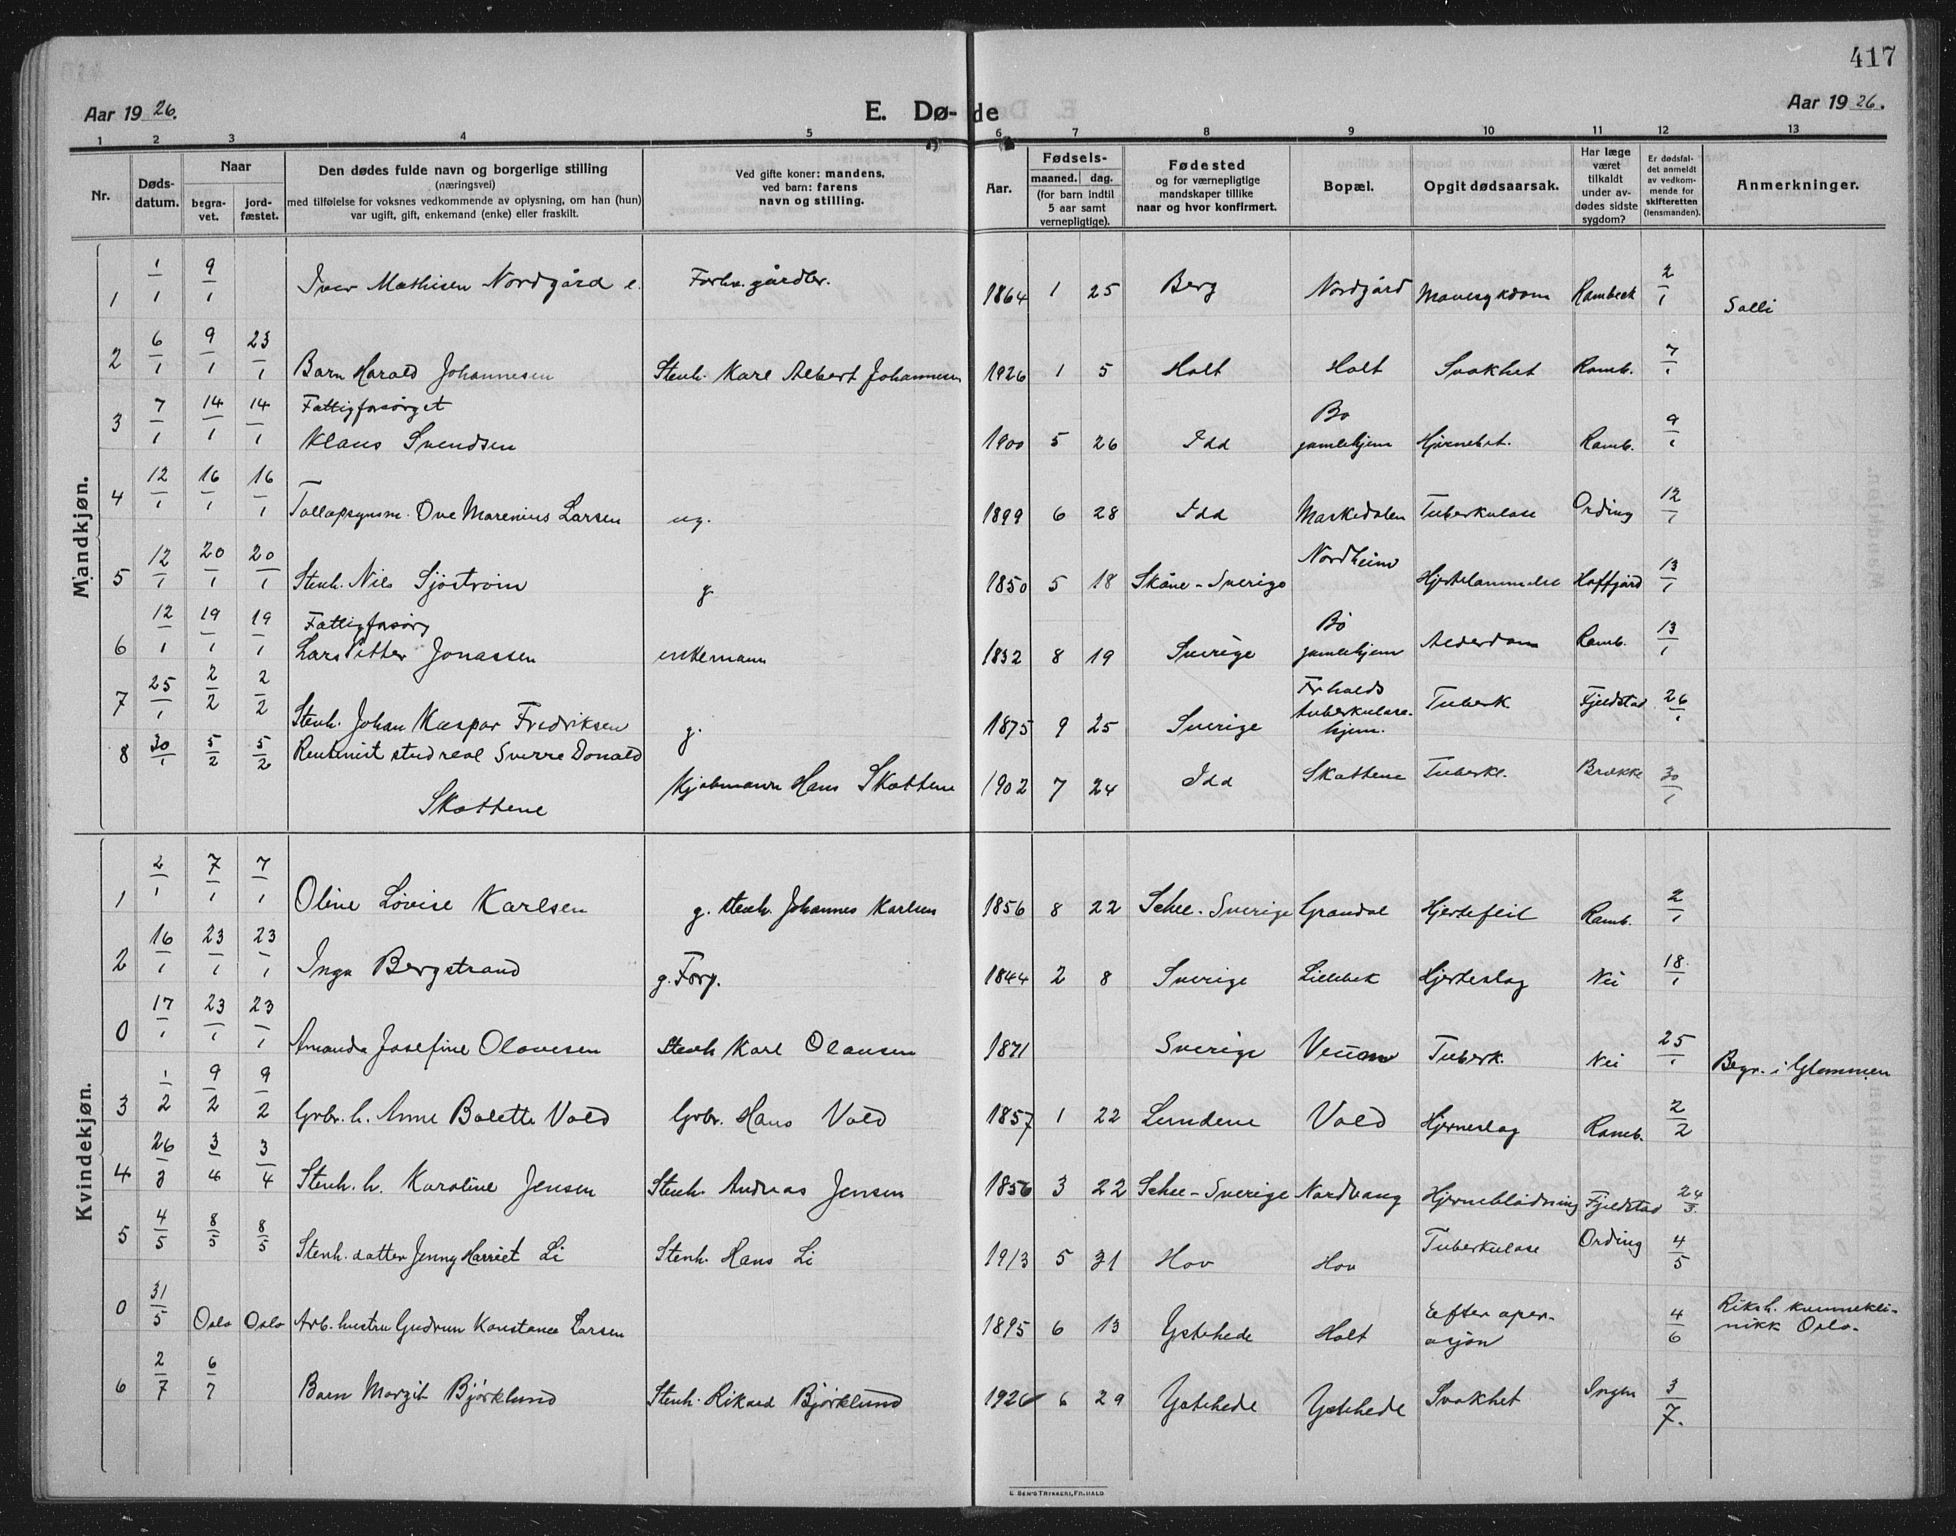 417
Aar 19 26.
E. Dø-de
Aar 19 26.
1 2 3 4 5 6 7 8 9 10 11 12 13
Nr.
Døds-
datum.
Naar
begra-
vet.
jord-
fæstet.
Den dødes fulde navn og borgerlige stilling
(næringsvei)
med tilføielse for voksnes vedkommende av oplysning, om han (hun)
var ugift, gift, enkemand (enke) eller fraskilt.
Ved gifte koner: mandens,
ved barn: farens
navn og stilling.
Aar.
Fødsels-
maaned. dag.
(for barn indtil
5 aar samt
vernepligtige).
Fødested
og for værnepligtige
mandskaper tillike
naar og hvor konfirmert.
Bopæl.
Opgit dødsaarsak.
Har læge
været
tilkaldt
under av-
dødes sidste
sygdom?
Er dødsfal-
det anmeldt
av vedkom-
mende for
skifteretten
(lensmanden).
Anmerkninger.
Mandkjøn.
1 1/1 9/1 Iver Mathisen Nordgård e. Forhv. gårdbr. 1864 1 25 Berg Nordgård Mavesykdom Rambech 2/1 Solli
2 6/1 9/1 23/1 Barn Harald Johannesen Stenh. Karl Albert Johannesen 1926 1 5 Holt Holt Svakhet Ramb. 7/1
3 7/1 14/1 14/1 Fattigforsørget
Klaus Svendsen 1900 5 26 Idd Bø
gamlehjem Hjernebet. Ramb. 9/1
4 12/1 16/1 16/1 Tollopsynsm. Ove Marenius Larsen ug. 1899 6 28 Idd Markedalen Tuberkulose Ording 12/1
5 12/1 20/1 20/1 Stenh. Nils Sjöström g. 1850 5 18 Skåne-Sverige Nordheim Hjertelammelse Hoffgård 13/1
6 12/1 19/1 19/1 Fattigforsørg
Lars Petter Jonassen enkemann 1832 8 19 Sverige Bø
gamlehjem Alderdom Ramb. 13/1
7 25/1 2/2 2/2 Stenh. Johan Kaspar Fredriksen g. 1875 9 25 Sverige Fr halds
tuberkulose-
hjem. Tuberk Fjeldstad 26/1
8 30/1 5/2 5/2 stud real Sverre Donald
Skottene Kjøbmann Hans Skottene 1902 7 24 Idd Skottene Tuberk. Brække 30/1
Kvindekjøn.
1 2/1 7/1 7/1 Oline Lovise Karlsen g. stenh. Johannes Karlsen 1856 8 22 Schee-Sverige Grandal Hjertefeil Ramb. 2/1
2 16/1 23/1 23/1 Inga Bergstrand g. Forg. 1844 2 8 Sverige Lillebek Hjerteslag Nei 18/1
0 17/1 23/1 23/1 Amanda Josefine Olavesen Stenh Karl Olausen 1871 Sverige Veum Tuberk. Nei 25/1 Begr. i Glommen
3 1/2 9/2 9/2 Grbr. h. Anne Bolette Vold Grbr. Hans Vold 1857 1 22 Lundene Vold Hjerneslag Ramb. 2/2
4 26/3 3/4 3/4 Stenh. h. Karoline Jensen Stenh. Andreas Jensen 1856 3 22 Schee-Sverige Nordvang Hjerneblødning Fjeldstad 24/3
5 4/5 8/5 8/5 Stenh. datter Jenny Harriet Li Stenh. Hans Li 1913 5 31 Hov Hov Tuberkulose Ording 4/5
0 31/5 Oslo Oslo Arb. hustru Gudrun Konstance Larsen 1895 6 13 Ystehede Holt Efter oper-
asjon 4/6 Riksh. kvinnekli-
nikk Oslo.
6 2/7 6/7 Barn Margit Bjørklund Stenh. Rikard Bjørklund 1926 6 29 Ystehede Ystehede Svakhet Ingen 3/7.